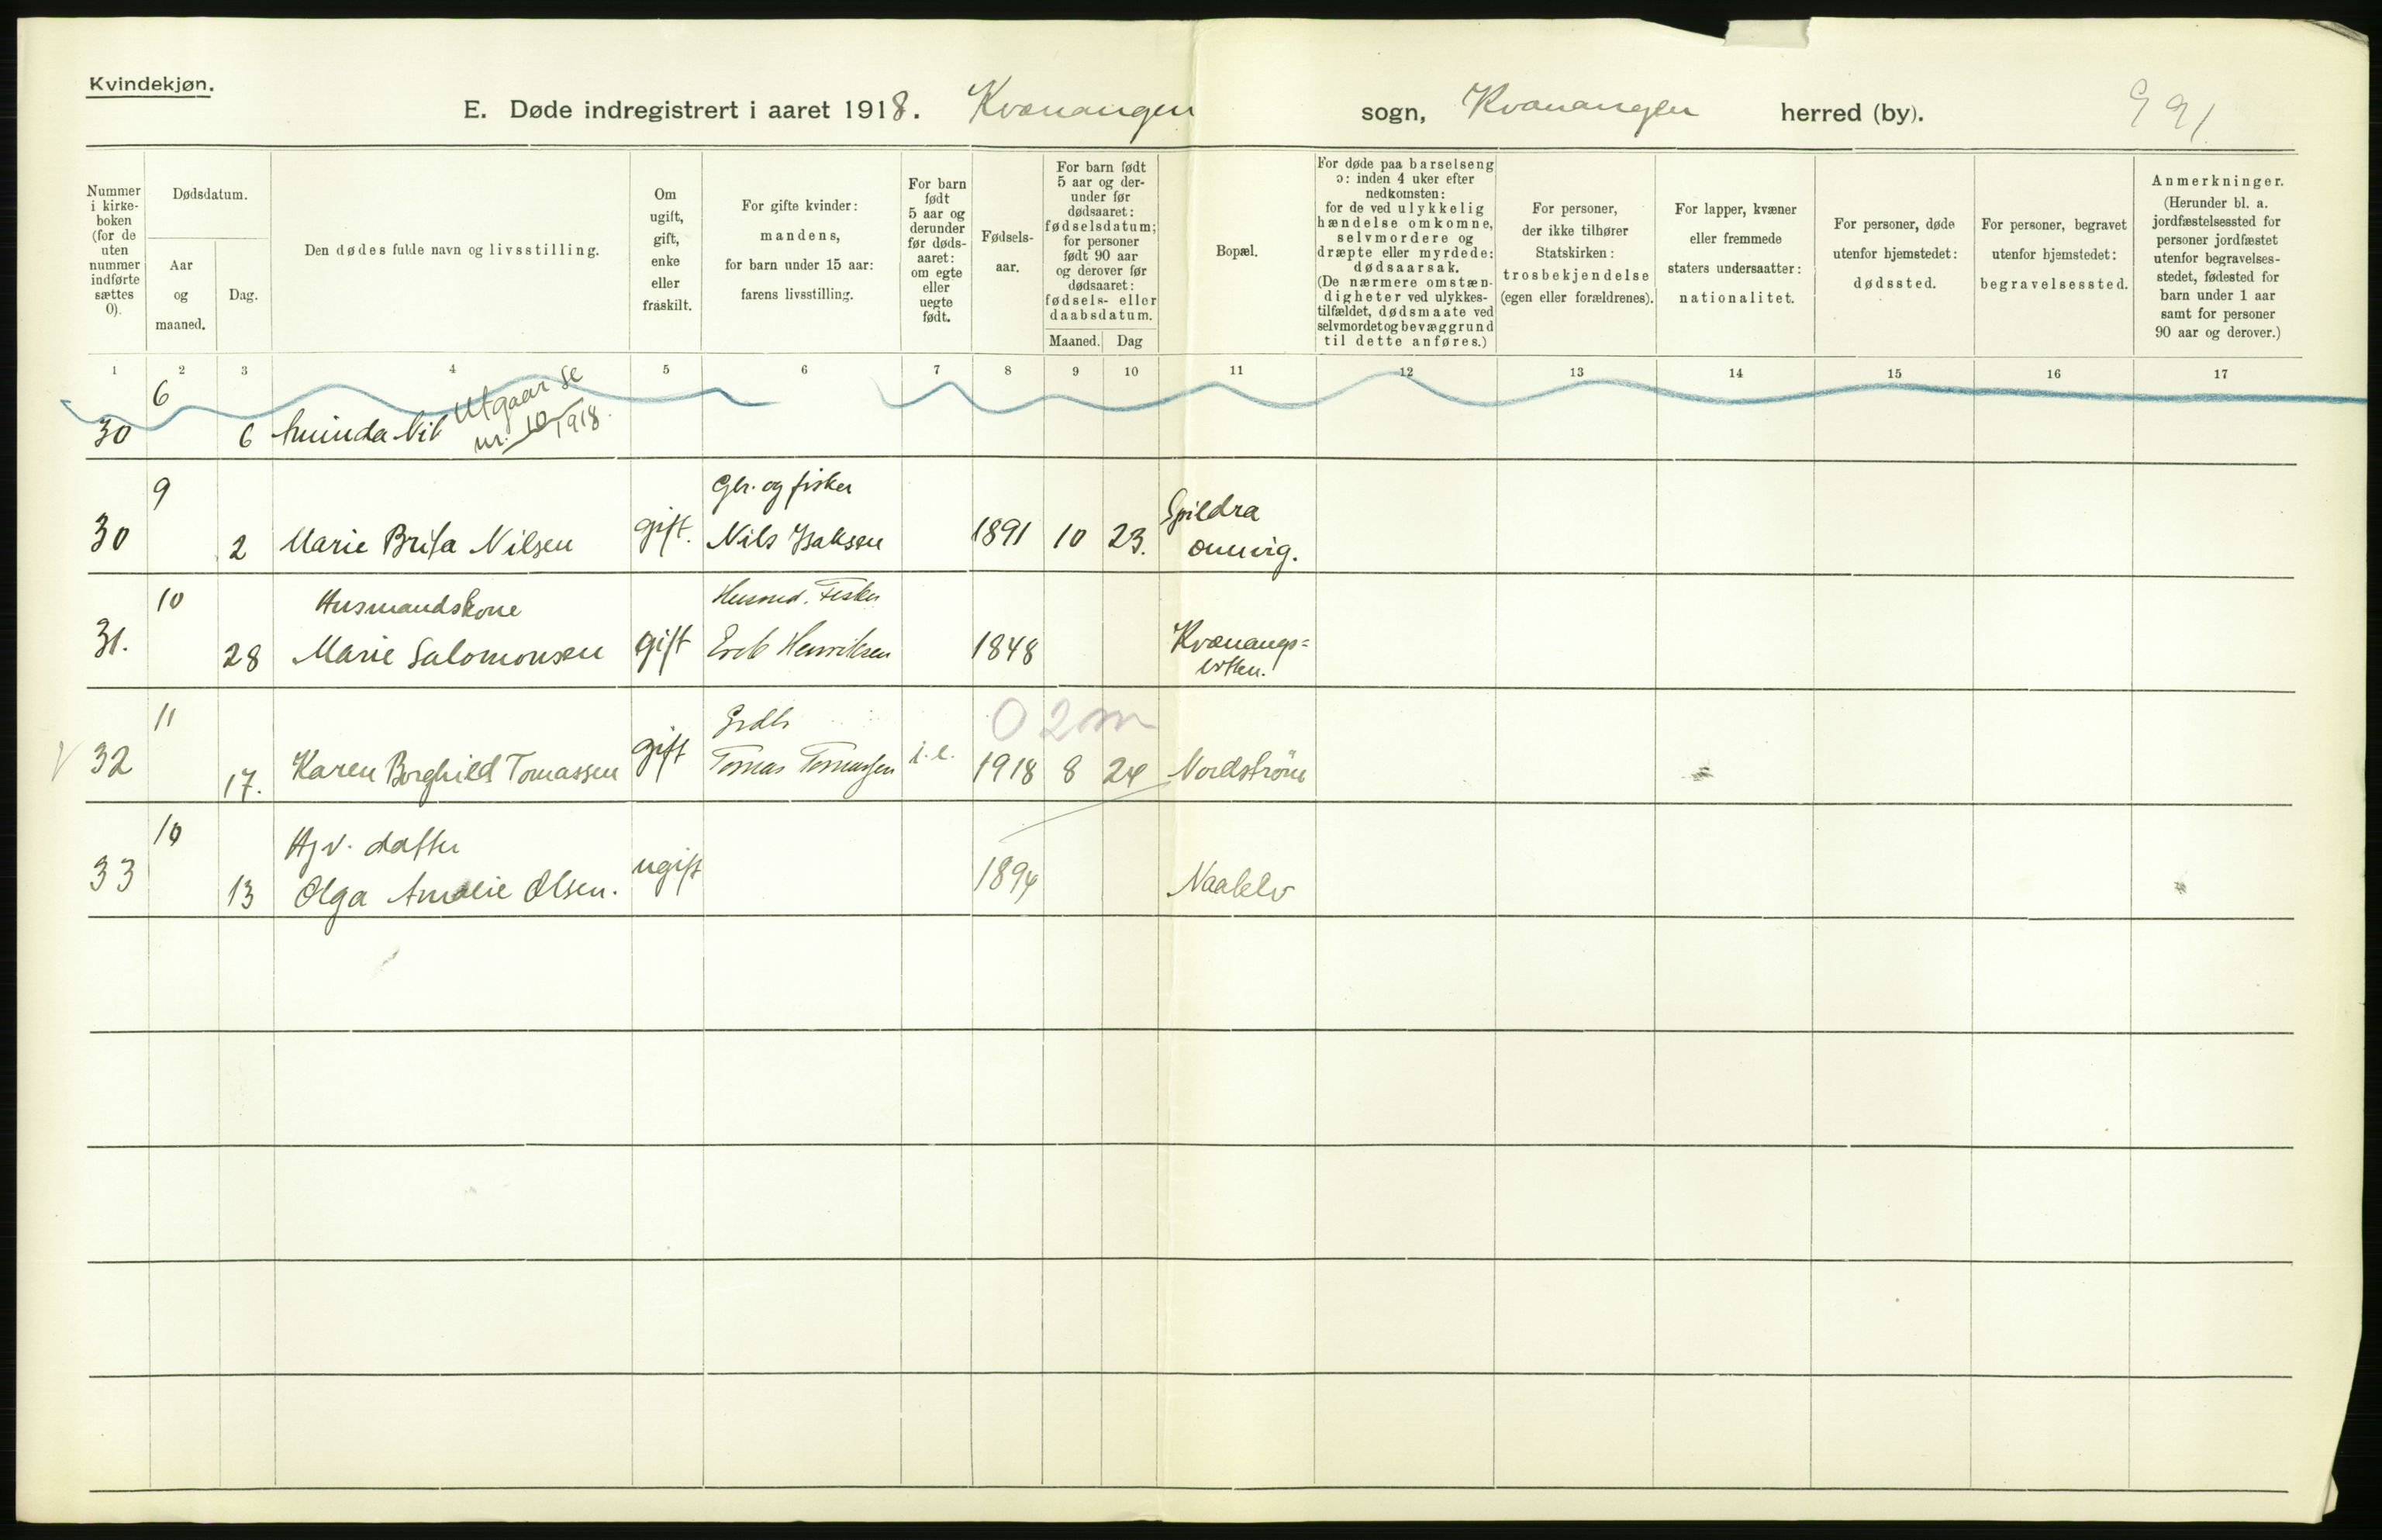 Kvindekjøn.
E. Døde indregistrert i aaret 1918. Kvænangen sogn, Kvænangen herred (by). 991
Nummer i kirkeboken (for de uten nummer indførte sættes 0).
Dødsdatum.
Aar og maaned.
Dag.
Den dødes fulde navn og livsstilling.
Om ugift, gift, enke eller fraskilt.
For gifte kvinder: mandens, for barn under 15 aar: farens livsstilling.
For barn født 5 aar og derunder før dødsaaret: om egte eller uegte født.
Fødselsaar.
For barn født 5 aar og derunder før dødsaaret: fødselsdatum; for personer født 90 aar og derover før dødsaaret: fødsels- eller daabsdatum.
Maaned. Dag
Bopæl.
For døde paa barselseng ɔ: inden 4 uker efter nedkomsten: for de ved ulykkelig hændelse omkomne, selvmordere og dræpte eller myrdede: dødsaarsak. (De nærmere omstændigheter ved ulykkestilfældet, dødsmaate ved selvmordet og bevæggrund til dette anføres.)
For personer, der ikke tilhører Statskirken: trosbekjendelse (egen eller forældrenes).
For lapper, kvæner eller fremmede staters undersaatter: nationalitet.
For personer, døde utenfor hjemstedet: dødssted.
For personer, begravet utenfor hjemstedet: begravelsessted.
Anmerkninger. (Herunder bl. a. jordfæstelsessted for personer jordfæstet utenfor begravelsesstedet, fødested for barn under 1 aar samt for personer 90 aar og derover.)
1 2 3 4 5 6 7 8 9 10 11 12 13 14 15 16 17
6 Utgaar se
30 6 Nil nr. 10 1918.
9 Gbr. og fisker Spildra
30 2 Marie Brita Nilsen gift. Nils Isaksen 1891 10 23.
10 Husmandskone Husmd. Fisker
31. 28 Marie Salomonsen gift Erik Henriksen 1848 Kvænangs=
11 02m
32 17. Karen Borghild Tomassen gift Tomas Tomassen i.e. 1918 8 24 Nordström
10 datter
33 13 Olga Amalie Olsen. ugift 1894 Naalelv